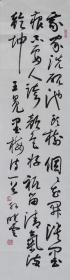 我家洗研池頭樹個個花開淡墨
痕不要人誇顏色好只留清氣滿
乾坤 王冕墨梅詩一首